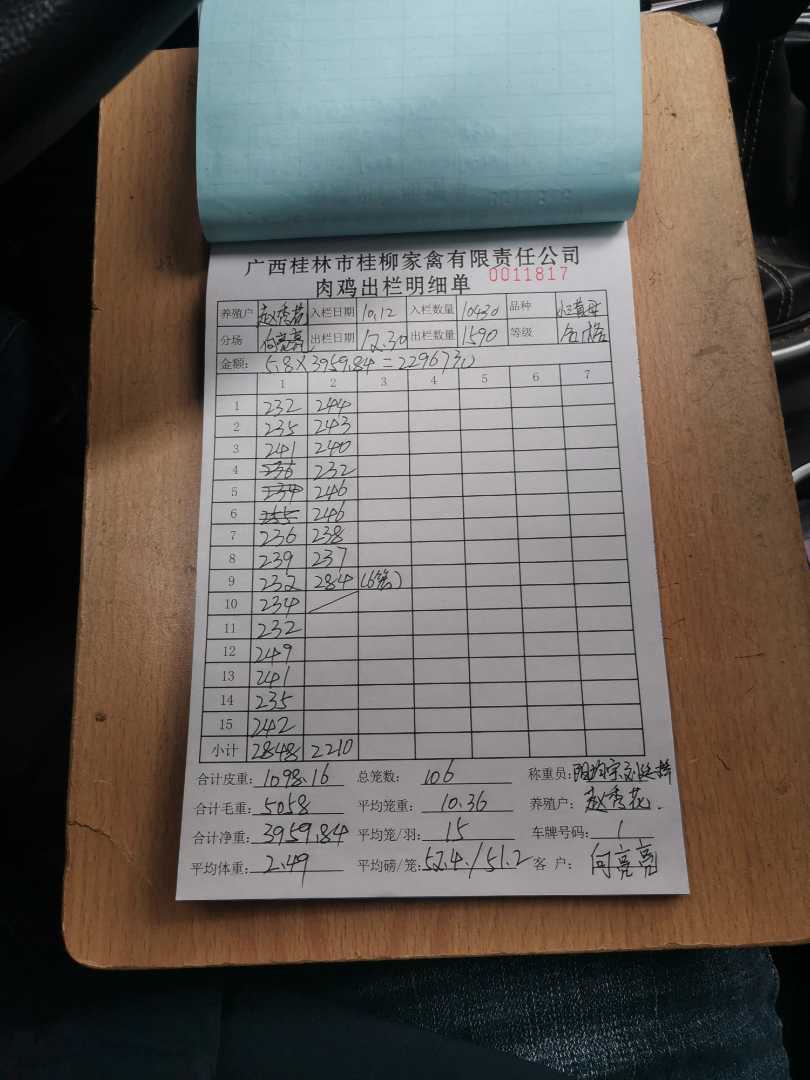 广西桂林市桂柳家禽有限责任公司
肉鸡出栏明细单 0011817
养殖户 赵秀花 入栏日期 10.12 入栏数量 10430 品种
分场 何亮亮 出栏日期 12.30 出栏数量 1590 等级 合格
金额: 5.8×3959.84=22967元
1 2 3 4 5 6 7
1 232 244
2 235 243
3 241 240
4 236 232
5 234 246
6 255 246
7 236 238
8 239 237
9 232 284 (6笼)
10 234
11 232
12 249
13 241
14 235
15 242
小计 2848 2210
合计皮重: 1098.16 总笼数: 106 称重员:
合计毛重: 5058 平均笼重: 10.36 养殖户: 赵秀花.
合计净重: 3959.84 平均笼/羽: 15 车牌号码: 1
平均体重: 2.49 平均磅/笼: 52.4/51.2 客 户: 何亮亮